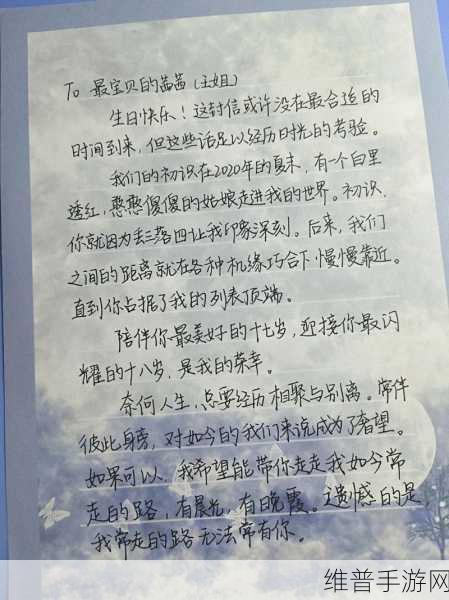 To 最宝贝的茜茜(王姐)
生日快乐!这封信或许没在最合适的
时间到来,但这些话足以经历时光的考验。
我们的初识在2020年的夏末,有一个白里
透红,憨憨傻傻的姑娘走进我的世界。初识,
你就因为丢三落四让我印象深刻。后来,我们
之间的距离就在各种机缘巧合下慢慢靠近。
直到你占据了我的列表顶端。
陪伴你最美好的十七岁,迎接你最闪
耀的十八岁,是我的荣幸。
奈何人生,总要经历相聚与别离。常伴
彼此身旁,对如今的我们来说成为了奢望。
如果可以,我希望能带你走走我如今常
走的路,有晨光,有晚霞。遗憾的是,
我常走的路无法常有你。
维普手游网